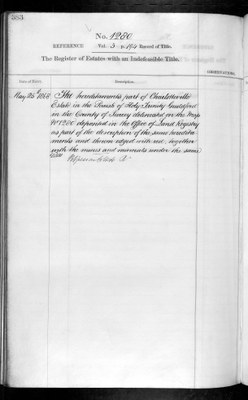 383
No. 1280
REFERENCE Vol. 3 p. Record of Title.
The Register of Estates with an Indefeasible Title.
OBSERVATIONS.
Date of Entry. Description.
May 25th 1869 The hereditaments part of Charlotteville
Estate in the Parish of Holy Trinity Guildford
in the County of Surrey delineated on the Map
No 1280 deposited in the Office of Land Registry
as part of the description of the same heredita-
ments and thereon edged with red, together
with the mines and minerals under the same